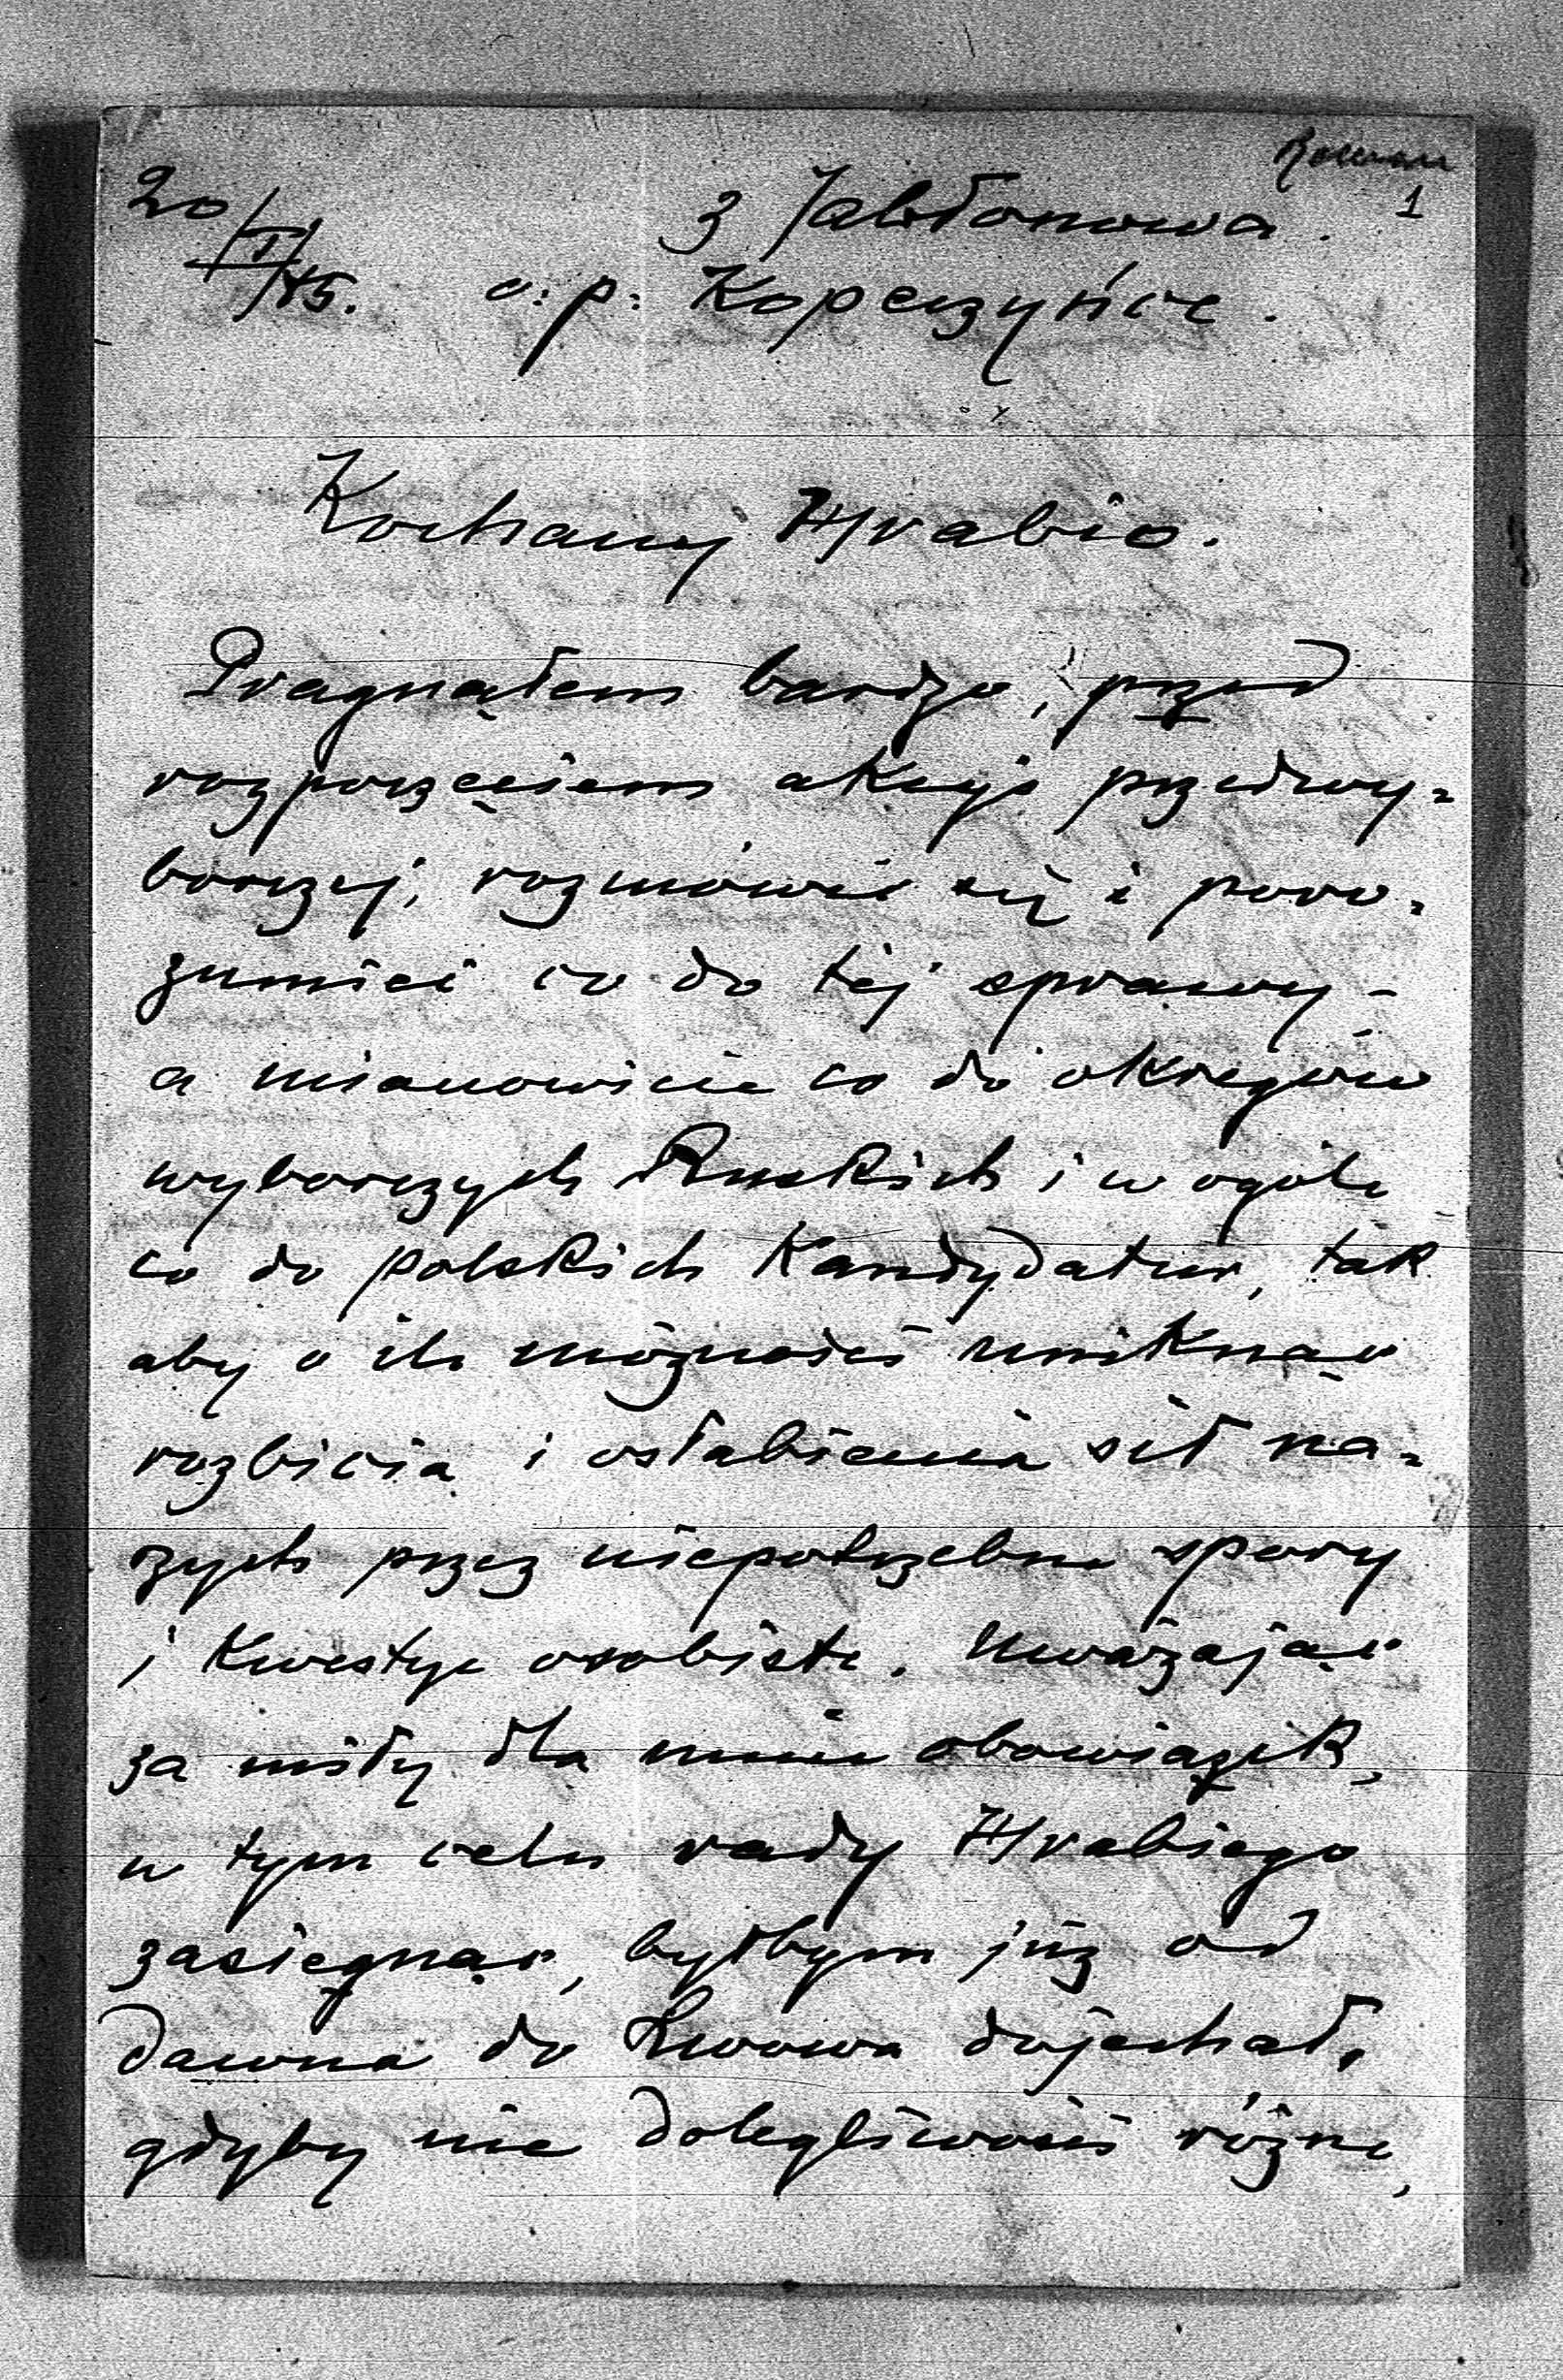 Roman
1
20/I/85. z Jabłonowa.
o: p: Kopeczyńce.
Kochany Hrabio.
Pragnąłem bardzo, przed
rozpoczęciem akcyi przedwy-
borczej, rozmówić się i poro-
zumieć co do tej sprawy –
a mianowicie co do okręgów
wyborczych Ruskich i w ogóle
co do polskich Kandydatur, tak
aby o ile możności uniknąć
rozbicia i osłabienia sił na-
szych przez niepotrzebne spory
i Kwestye osobiste. Uważając
za miły dla mnie obowiązek,
w tym celu rady Hrabiego
zasięgnąć, byłbym już od
dawna do Lwowa dojechał,
gdyby nie dolegliwości różne,